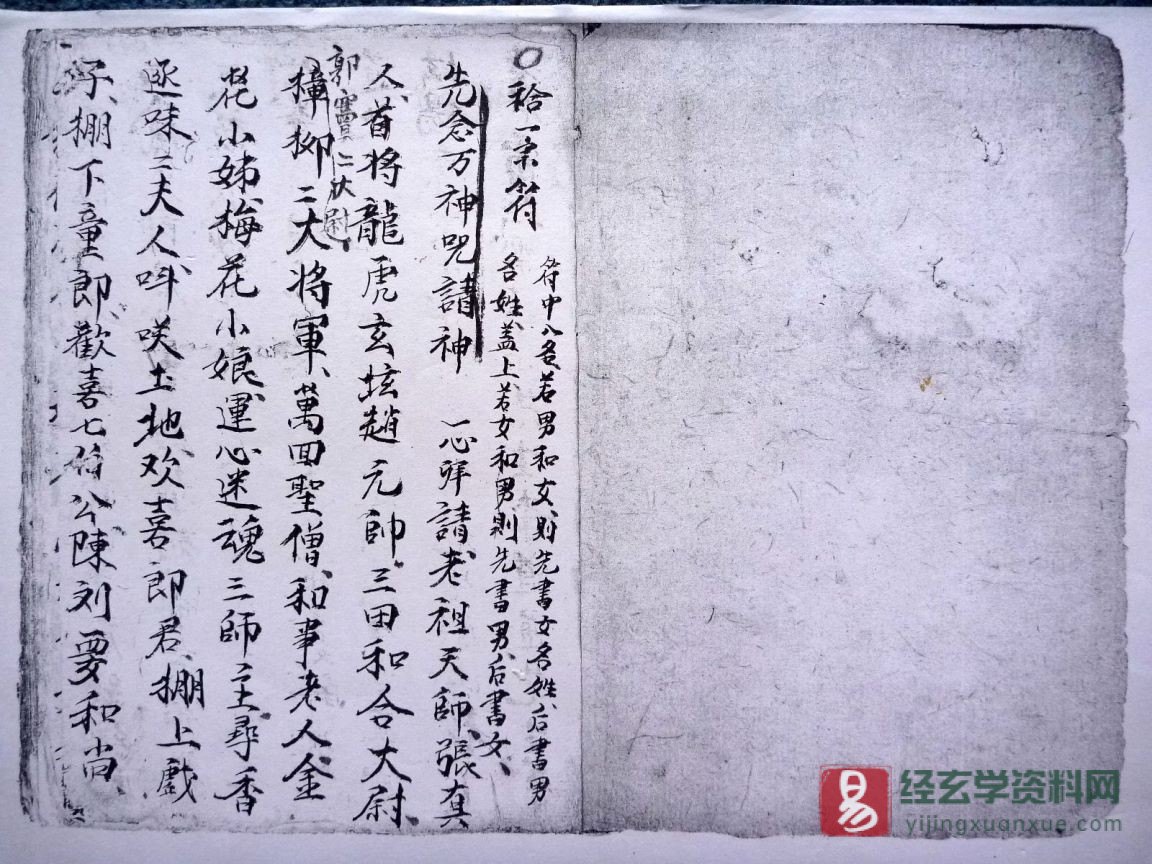 ○給一宗符
符中八名若男和女則先書女名姓后書男
名姓盖上若女和男則先書男后書女
先念万神咒請神 一心拜請老祖天師張真
人首将龍虎玄坛趙元帥三田和合大尉
郭竇二伏尉
樟柳二大将軍萬回聖僧和事老人金
花小姊梅花小娘運心迷魂三師主尋香
逐味二夫人叫咲土地欢喜郎君棚上戲
子棚下童郎歡喜七伯公陳刘要和尚
易
经玄学资料网
yijingxuanxue.com